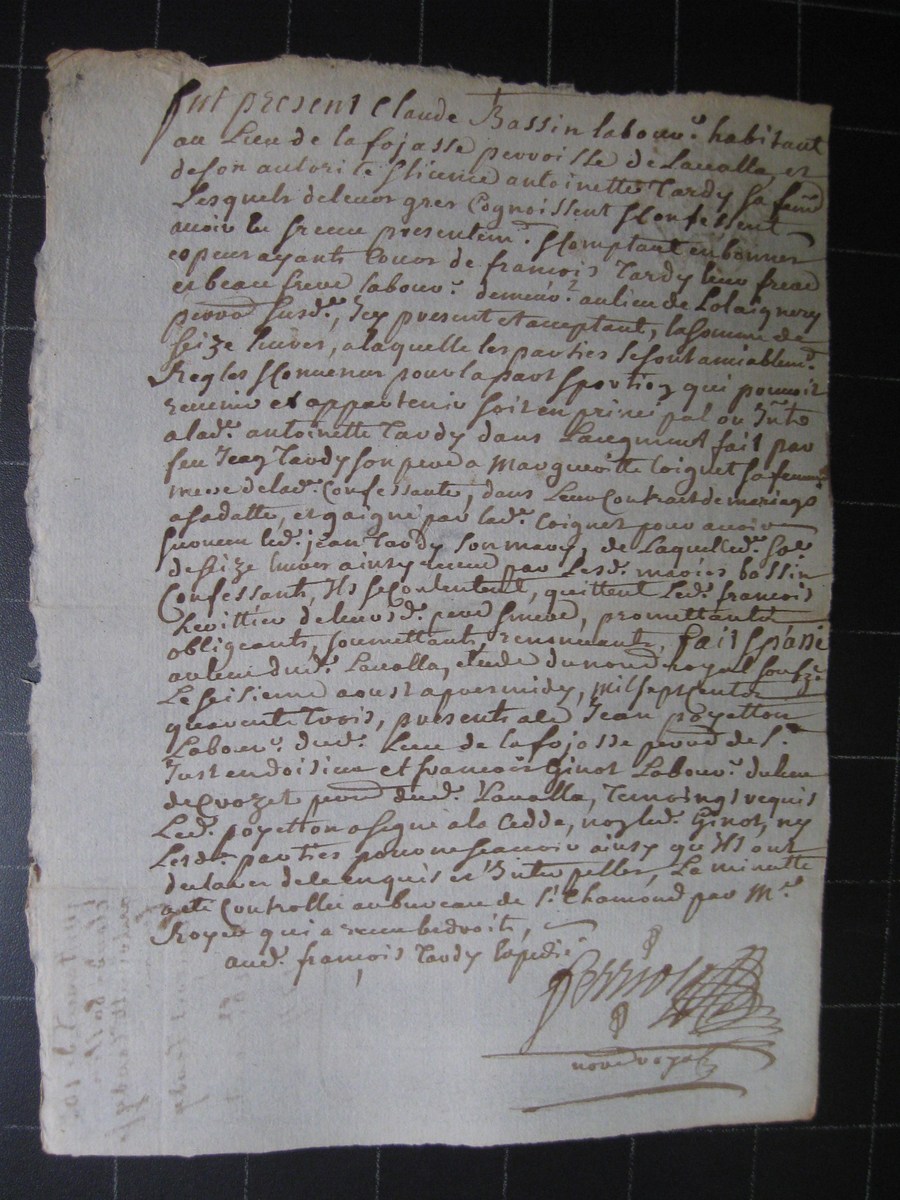 fut present Claude Bassin labour.r habitant
au Lieu de la fojasse parroisse de Lavalla, et
de son autorité & licence antoinette Tardy sa femme
Lesquels de leurs gres Cognoissent & Confessent
avoir Eu & receu presentem.t & Comptant en bonnes
especes ayants Cours de françois Tardy leur frere
et beau frere labour.r demeur.t au lieu de Lolaignery
parr susd.e, Icy present et acceptant, la somme de
seize livres, a laquelle les parties se sont amiablem.t
Regles & Convenus pour la part & portion qui pouvoit
revenir et appartenir soit en principal ou Inte
a lad.e antoinette Tardy dans Laugment fait par
feu Jean Tardy son pere a Margueritte Coignet sa femme
mere de lad.e Confessante, dans Leur Contrat de mariage
a sa datte, et gaigné par lad.e Coignet pour avoir
survecu led.t jean Tardy son mary, de Laquelle d.e so.e
de seize livres ainsy receue par Lesd.s maries bassin
Confessants, Ils se Contentent, quittent Led.t françois
heritier de leurs d.t pere & mere, promettants
obligeants, soumettants, renonceants, fait & passé
au lieu dud.t Lavalla, etude du no.re royal soubz.e
Le seisieme aoust apres midy, mil sept Centz
quarente trois, presents a ce Jean poyetton
Labour.r dud.t Lieu de la fojasse parr de S.t
Just en doisieu et françois Ginot Labour.r du lieu
de Crozet parr dud.t Lavalla, Temoings requis
Led.t poyetton a signé a la Cedde, non led.t Ginot, ny
Lesd.es parties pour ne sçavoir ainsy qu'Ils ont
declarer de le enquis et Interpellés, La minutte
a ete Controllée au bureau de S.t Chamond par M.r
Royer qui a receu les droits,
aud.t françois Tardy Expedié
no.re royal